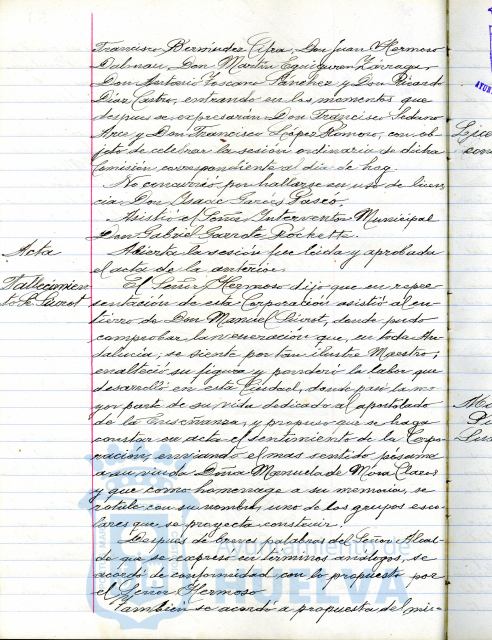 Francisco Bermúdez Afra, Don Juan Hermoso
Dalmau, Don Martín Eguiguren Zárraga,
Don Antonio Toscano Sánchez y Don Ricardo
Díaz Castro, entrando en los momentos que
después se expresarán Don Francisco Sedeno
Arce y Don Francisco López Romero, con ob-
jeto de celebrar la sesión ordinaria de dicha
Comisión correspondiente al día de hoy.
No concurrió por hallarse en uso de licen-
cia Don Isaac Garcés Pasco.
Asistió el Señor Interventor Municipal
Don Gabriel Garrote Rochette.
Acta
Abierta la sesión fue leída y aprobada
el acta de la anterior.
Fallecimien-
to Sr. Siurot
El Señor Hermoso dijo que en repre-
sentación de esta Corporación asistió al en-
tierro de Don Manuel Siurot, donde pudo
comprobar la veneración que, en toda An-
dalucía, se siente por tan ilustre Maestro;
enalteció su figura y ponderó la labor que
desarrolló en esta Ciudad, donde pasó la ma-
yor parte de su vida dedicado al apostolado
de la Enseñanza, y propuso que se haga
constar en acta el sentimiento de la Corpo-
ración, enviando el mas sentido pésame
a su viuda Doña Manuela de Mora Claros
y que como homenage a su memoria, se
rotule con su nombre uno de los grupos esco-
lares que se proyecta construir.
Después de breves palabras del Señor Alcal-
de que se expresó en términos análogos, se
acordó de conformidad con lo propuesto por
el Señor Hermoso.
También se acordó a propuesta del mis-
Lice
con
Ayuntamiento de
HUELVA